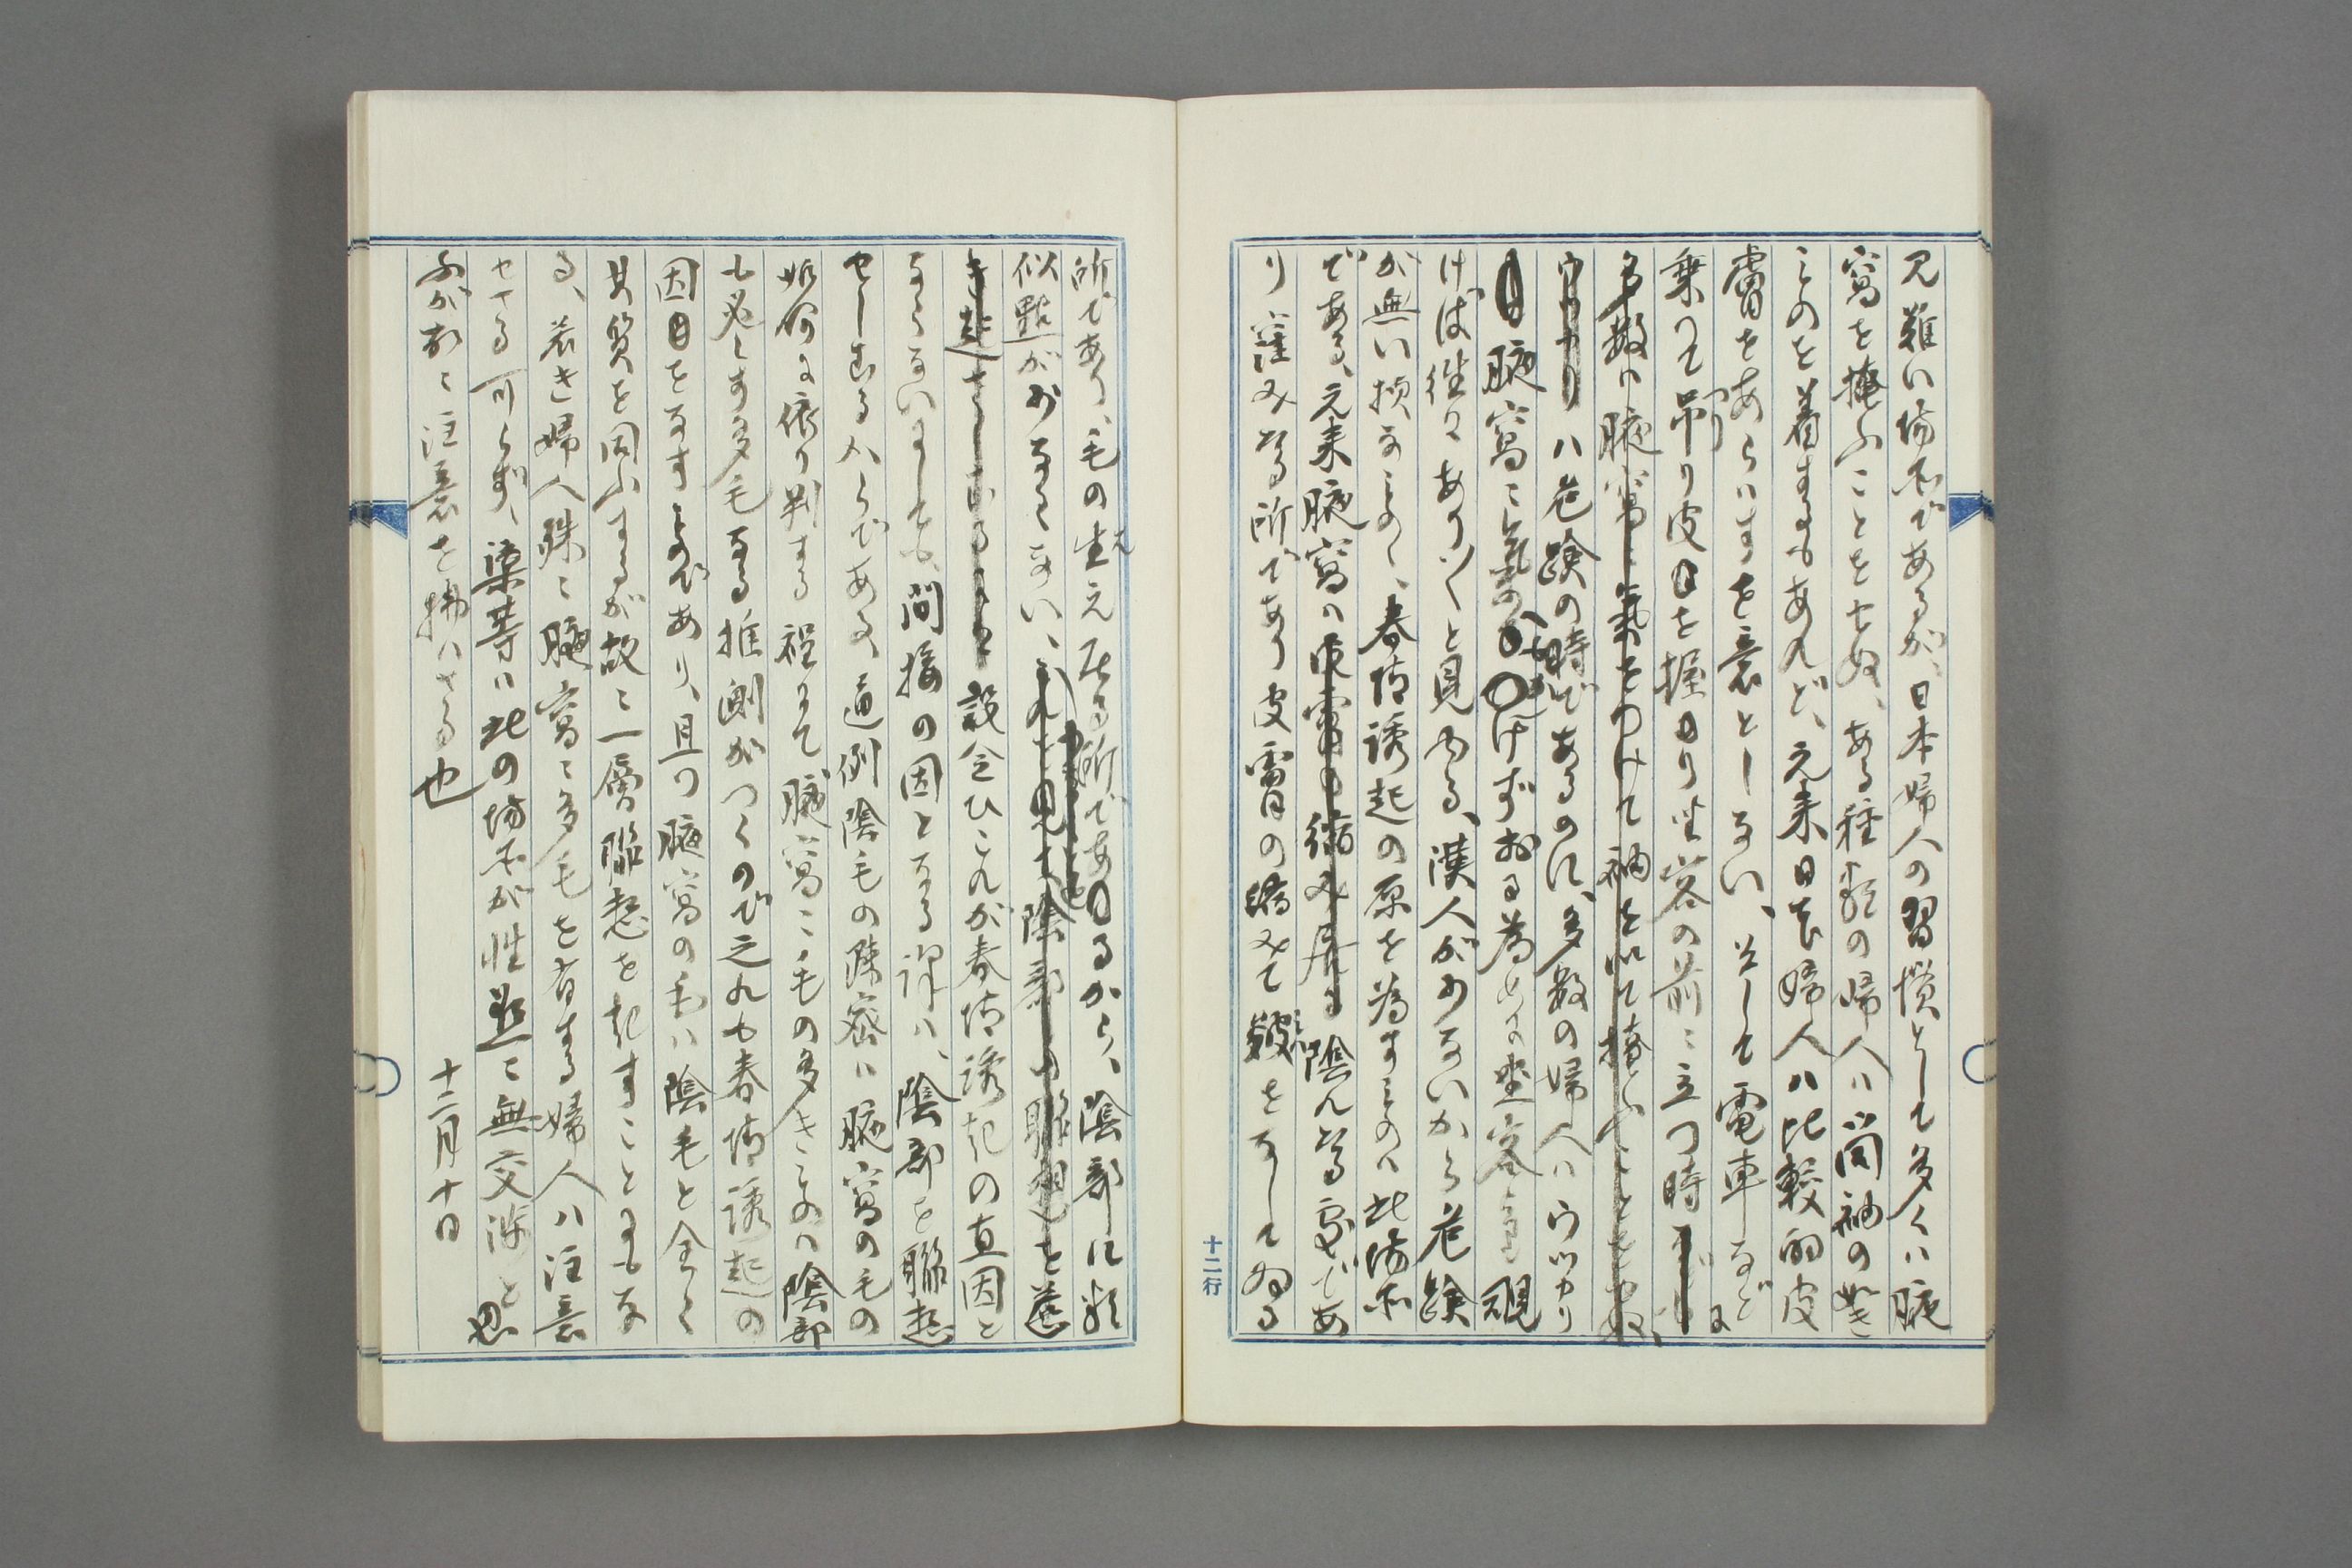 見難い場所であるが、日本婦人の習慣として多くハ腋
窩を掩ふことをせぬ、ある種類の婦人ハ筒袖の如き
ものを着するもあれど、元来日本婦人ハ比較的皮
膚をあらハすを意としない、そして電車などに
乗りて吊り皮を握り坐客の前に立つ時
多数ハ腋窩に氣をつけて袖を以て掩ふことをせぬ、
ハ危険の時であるのに、多数の婦人ハウツカリ
腋窩に氣をつけずおる為めに坐客に覗
けば往々あり〱と見ゆる、漢人が少ないから危険
が無い様なものゝ、春情誘起の原を為すものハ此場所
である、元来腋窩ハ陰んなる処であ
り窪みなる所であり皮膚の縮みて皺をなしてゐる
所であり、毛の生え居る所であるから、陰部に類
似點が少なくない、これを見て陰部の聯想を惹
き起さしむるは設令ひこれが春情誘起の直因と
ならないまでも、間接の因となる譯ハ、陰部を聯想
せしむるからである、通例陰毛の疎密ハ腋窩の毛の
如何に依り判する程にて腋窩に毛の多きものハ陰部
も必らず多毛なる推測がつくので之れも春情誘起の
因をなすものであり、且つ腋窩の毛ハ陰毛と全く
其質を同ふするが故に一層聯想を起すことにもな
る、若き婦人殊に腋窩に多毛を有する婦人ハ注意
せざる可らず、渠等ハ此の場所が性慾に無交渉と思
ふが故に注意を拂ハざる也
十二月十日
十二行